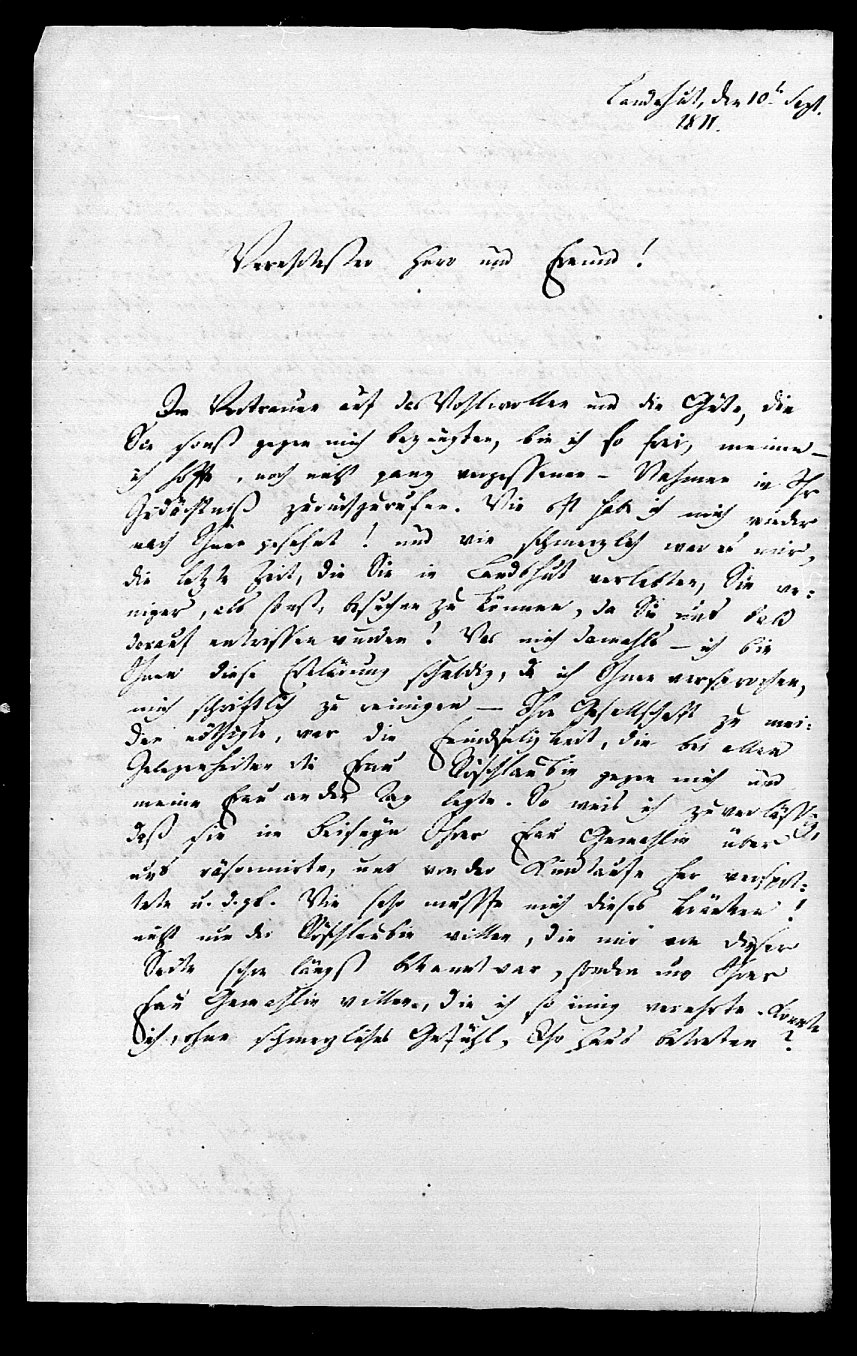 Landshut, den 10t Sept.
1811.
Verehrtester Herr und Freund!
Im Vertrauen auf das Wohlwollen und die Güte, die
Sie sonst gegen mich bezeugten, bin ich so frei, meinen –
ich hoffe, noch nicht ganz vergessenen – Nahmen in Ihr
Gedächtniß zurückzurufen. Wie oft hab ich mich wieder
nach Ihnen gesehnt! und wie schmerzlich war es mir,
die letzte Zeit, die Sie in Landshut verlebten, Sie we-
niger, als sonst, besuchen zu können, da Sie uns bald
darauf entrissen wurden! Was mich damahls – ich bin
Ihnen diese Erklärung schuldig, da ich Ihnen versprochen,
mich schriftlich zu reinigen – Ihre Gesellschaft zu mei-
den nöthigte, war die Feindseligkeit, die bei allen
Gelegenheiten die Frau Röschlaubin gegen mich und
meine Frau an den Tag legte. So weis ich zuverlässig,
daß sie im Beiseyn Ihrer Frau Gemahlin über
uns räsonnirte, uns von der Kindtaufe her verspot-
tete u. d.gl. Wie sehr mußte mich dieses kränken!
nicht um der Röschlaubin willen, die mir von dieser
Seite schon längst bekannt war, sondern um Ihrer
Frau Gemahlin willen, die ich so innig verehrte. Konnte
ich, ohne schmerzliches Gefühl, Ihr Haus betreten?